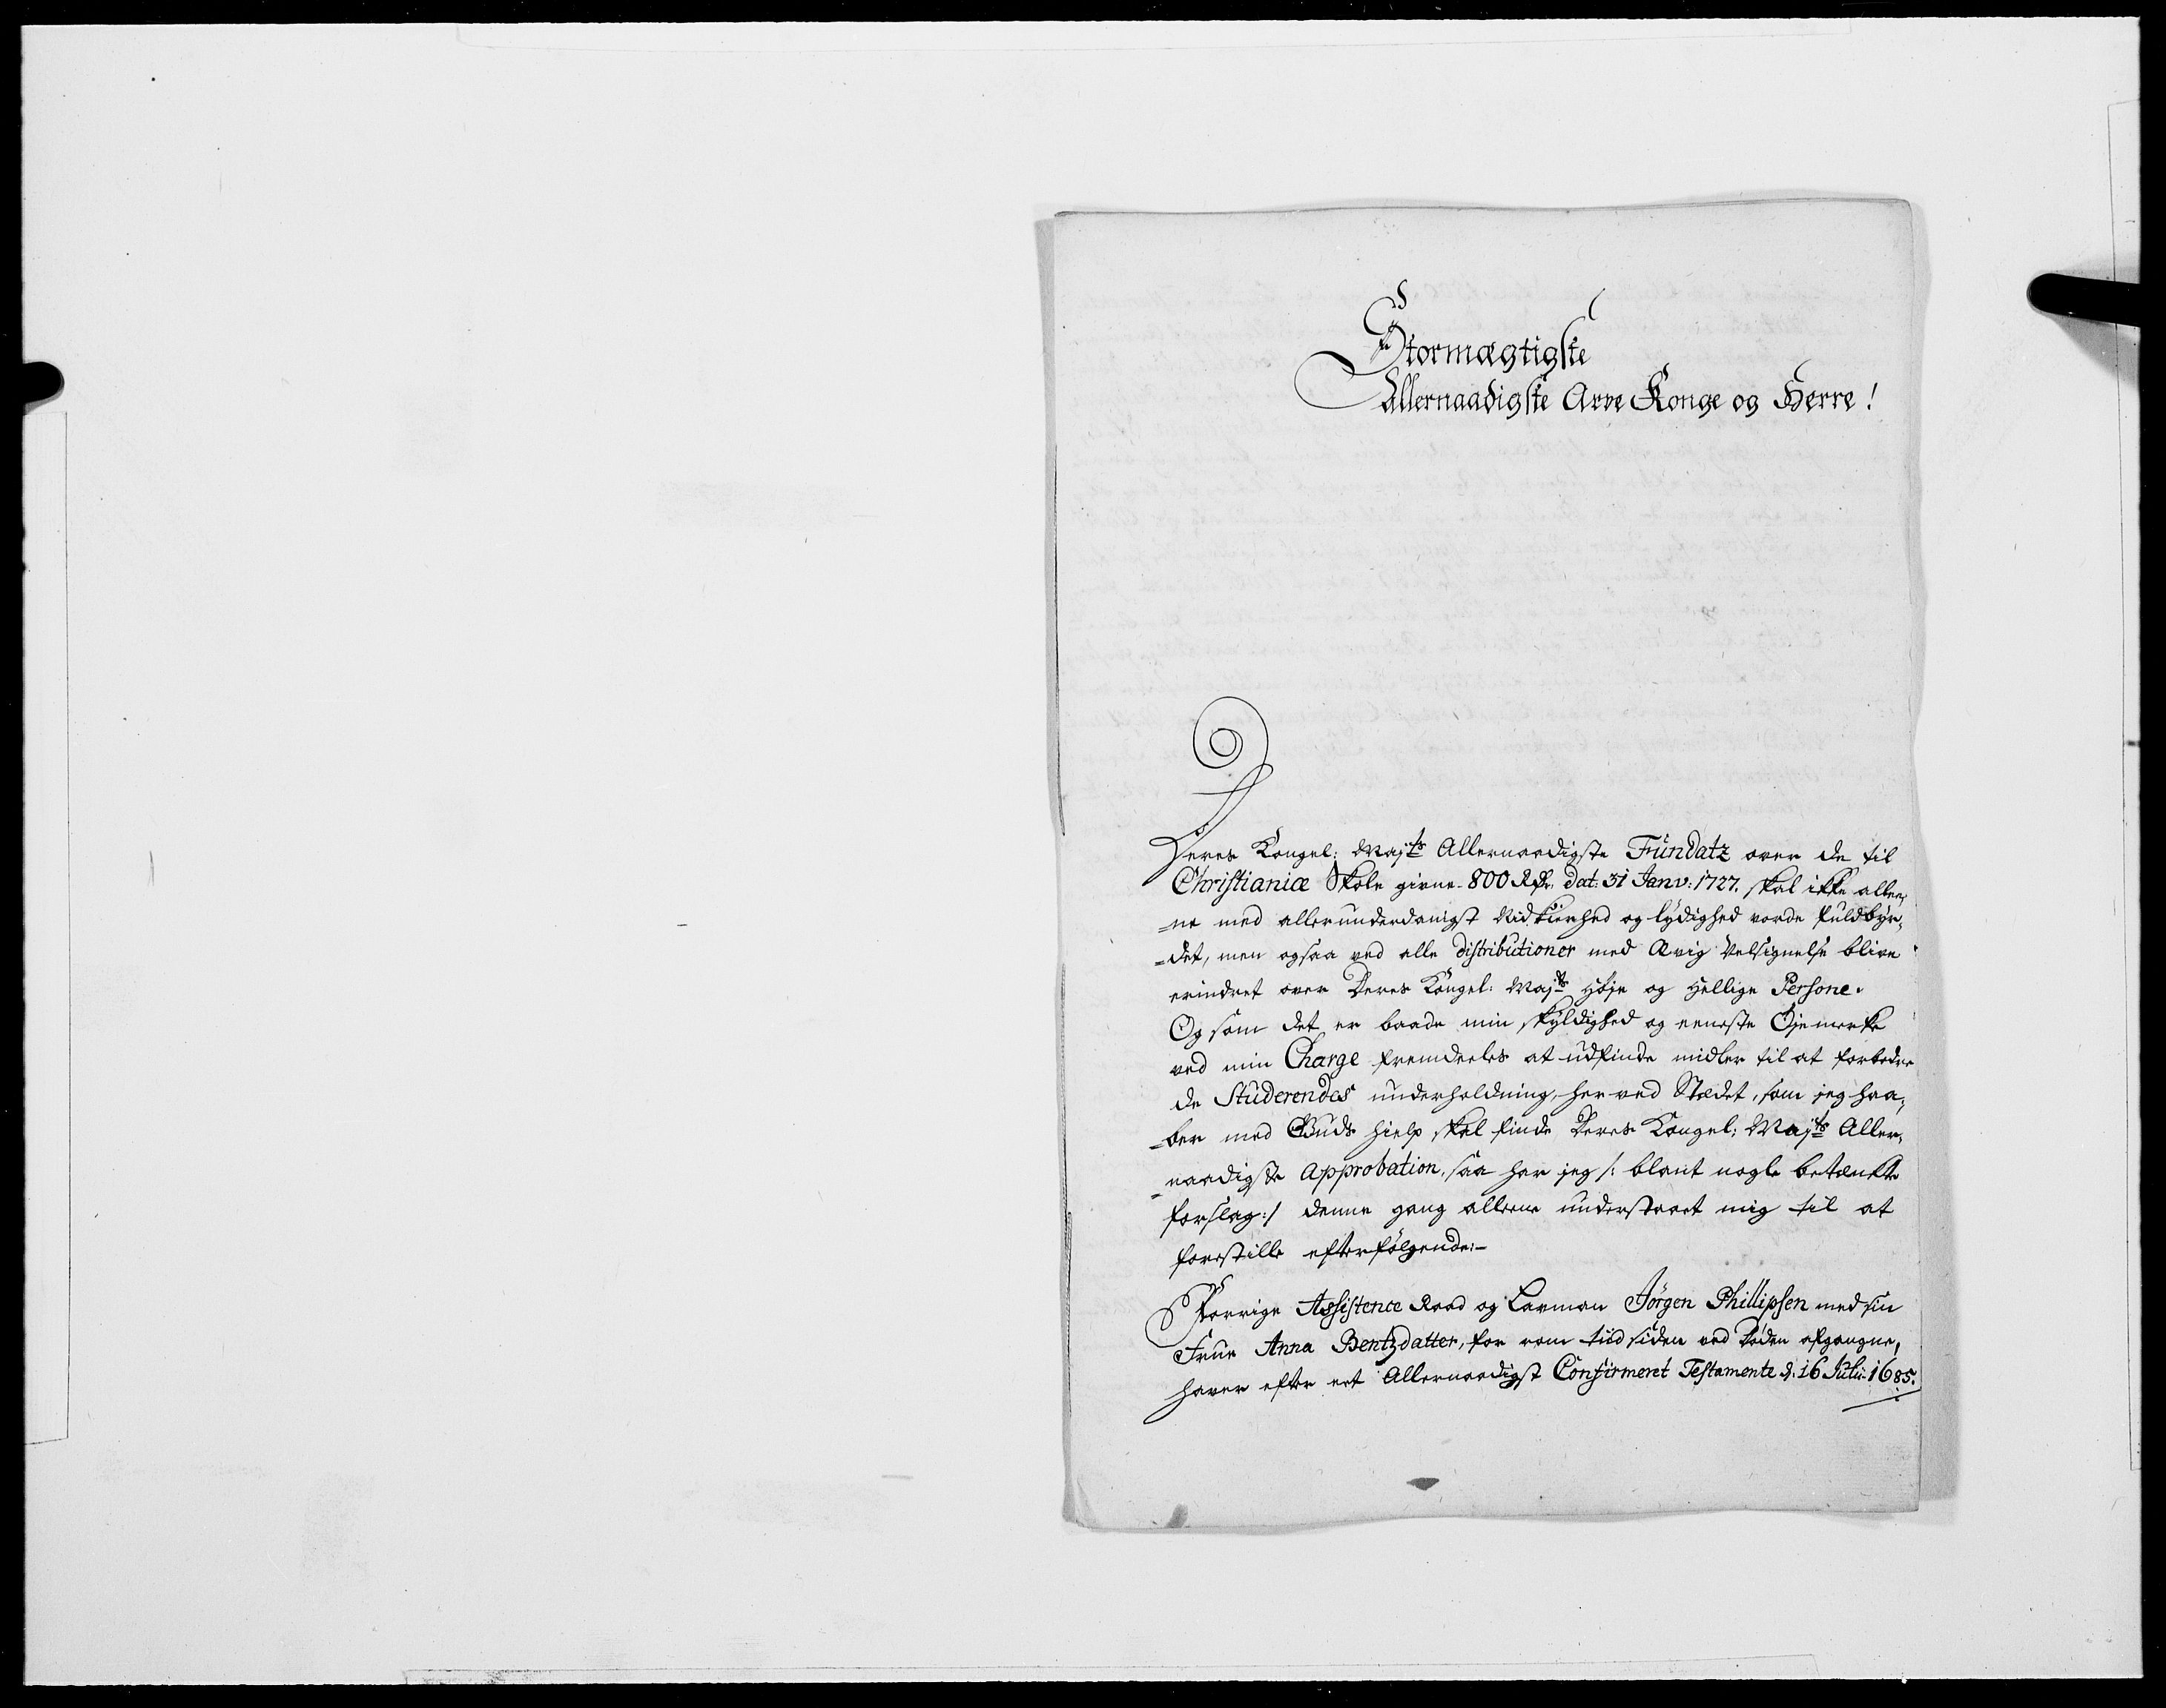 Stormægtigste
Allernaadigste Arve Konge og Herre!
Deres Kongel: Majts Allernaadigste Fundatz over de til
Christianiæ Skole givne 800 Rdr. dat: 31 Janv: 1727. skal ikke allee„
„ne med allerunderdanigst Nidkierhed og lydighed vorde fuldbyr„
„det, men ogsaa ved alle distributioner med Ævig Velsignelse blive
erindret over Deres Kongel: Majts Høje og Hellige Persone.
Og som det er baade min skyldighed og eeneste Øjemerke
ved min Charge fremdeeles at udfinde midler til at forbedre
de Studerendes underholdning, her ved Stædet, som jeg haa„
„ber med Guds hielp skal finde Deres Kongel: Majts Aller„
„naadigste Approbation, saa har jeg /: blant nogle betænkte
forslag :/ denne gang alleene understaaet mig til at
forestille efterfølgende:
Forrige Assistence Raad og Laumau Jörgen Phillipsen med sin
Frue Anna Bentzdatter, for nom tiid siden ved Døden afgangne,
haver efter eet Allernaadigst Confirmeret Testamente d: 16 Julii 1685.